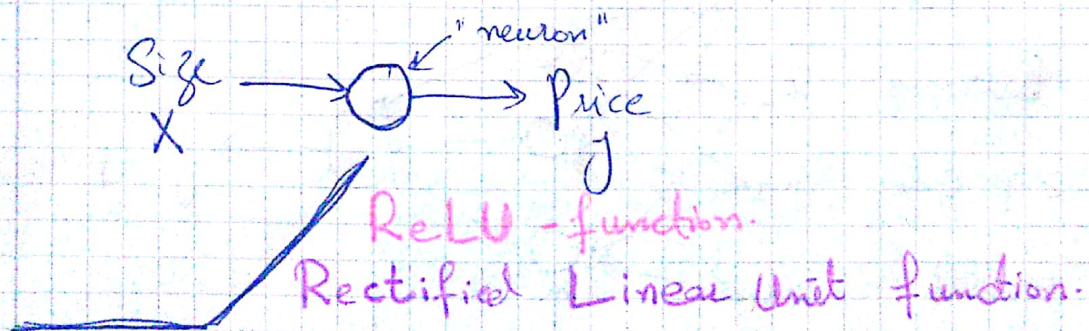 "neuron"
Size Price
X y
ReLU - function.
Rectified Linear Unit function.